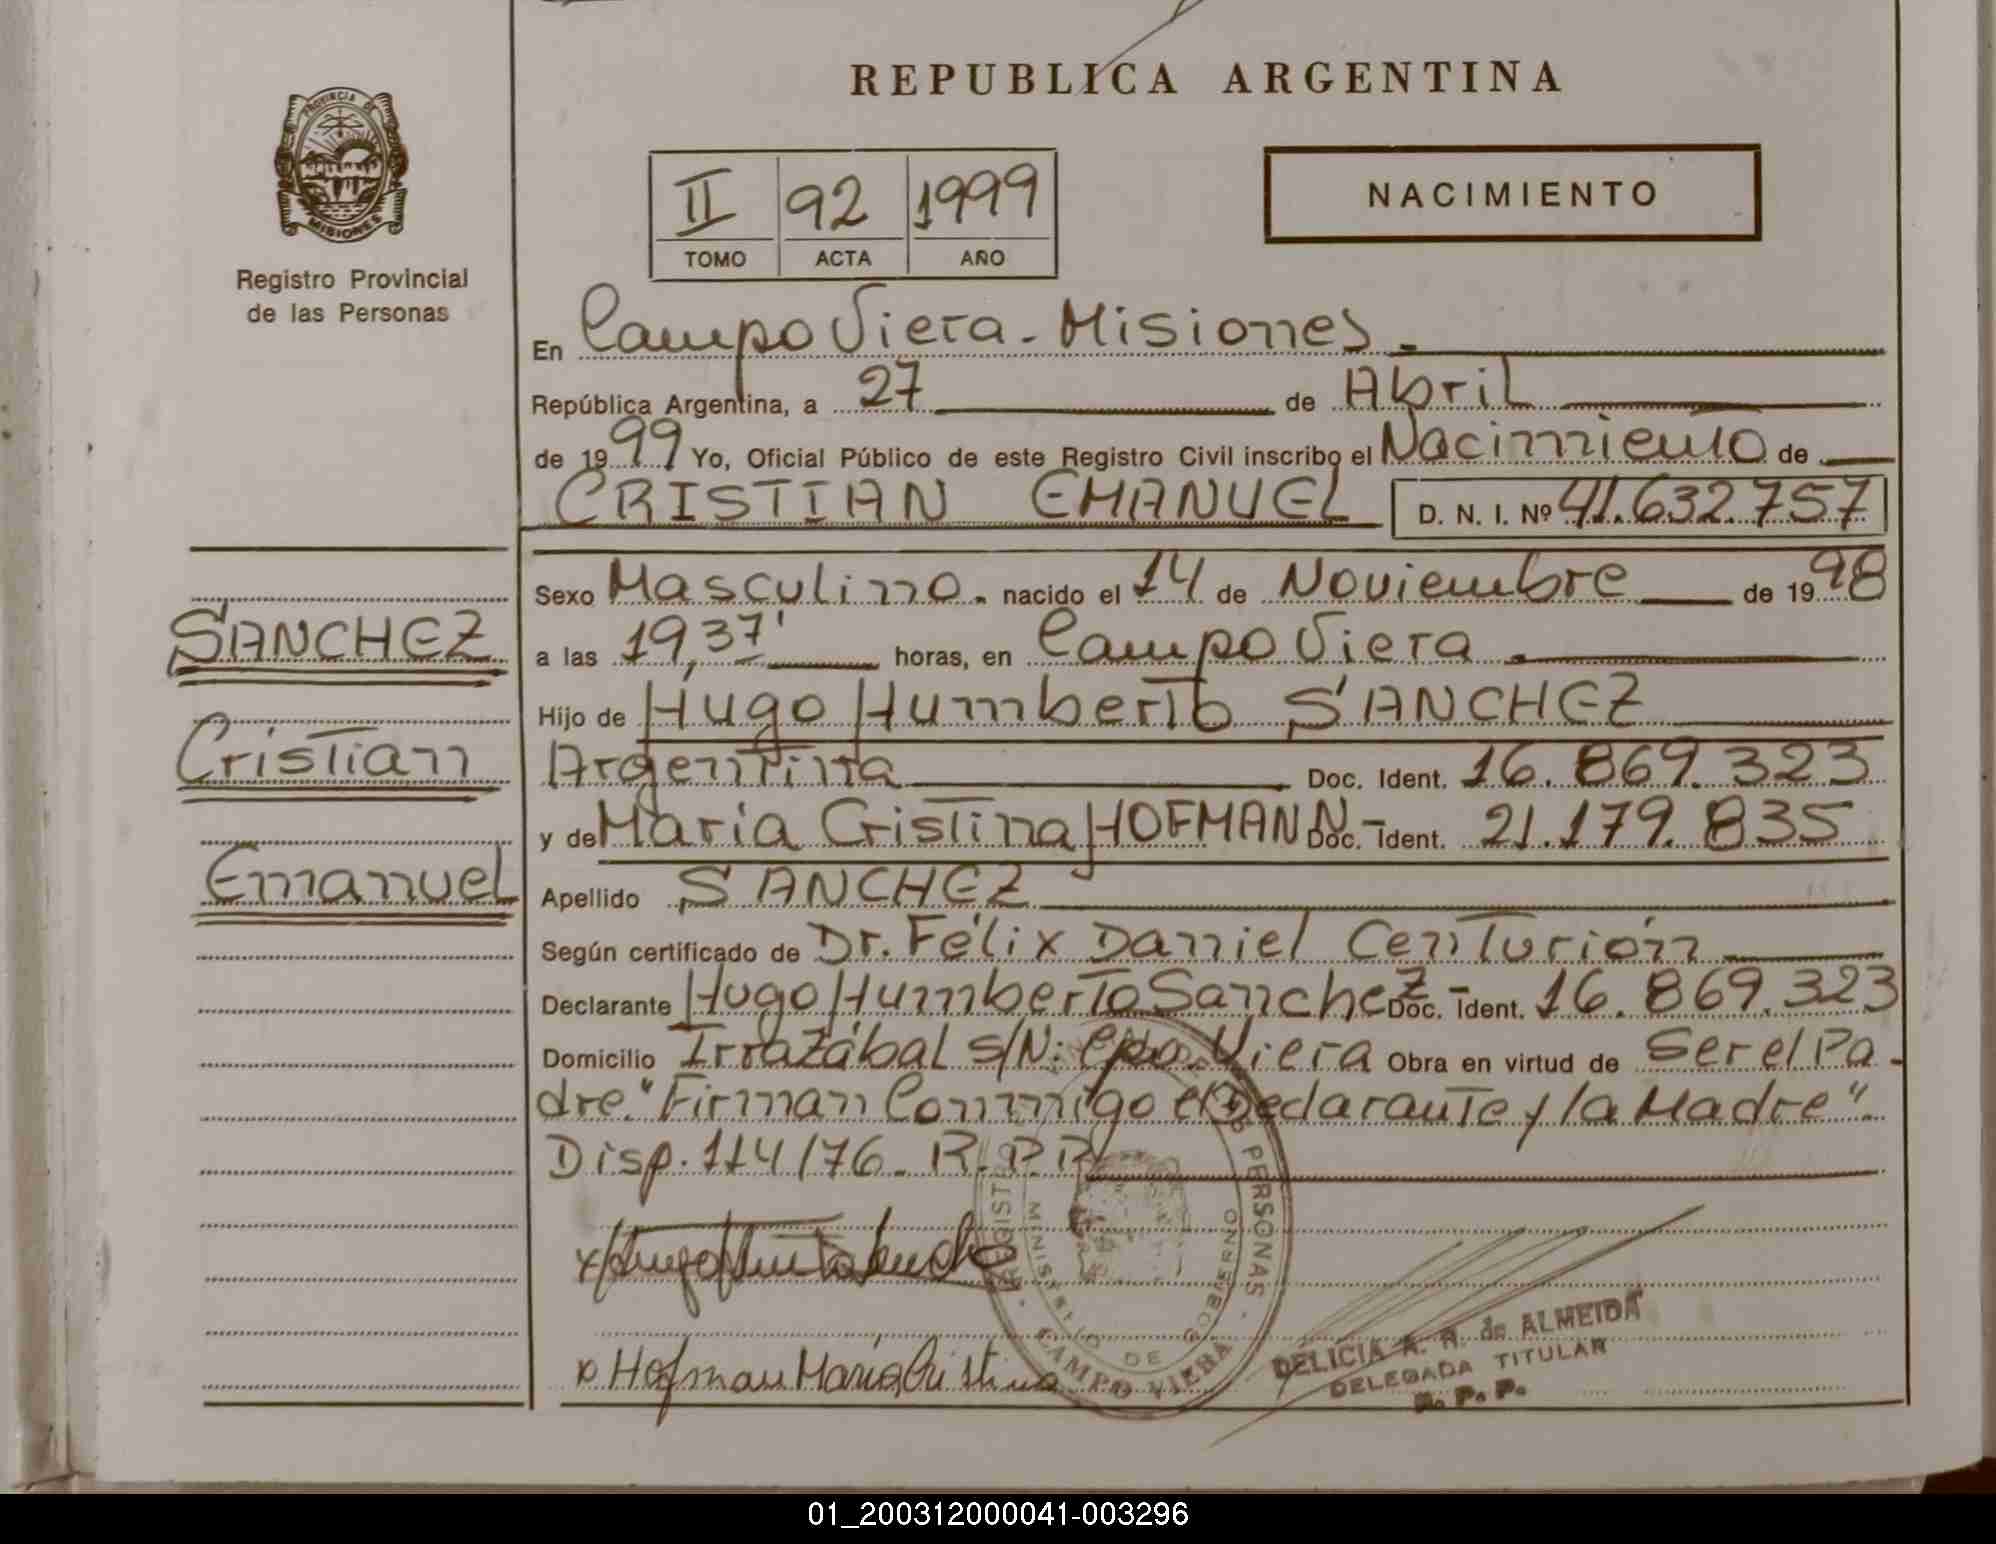 REPUBLICA ARGENTINA
PROVINCIA DE
MISIONES
Registro Provincial
de las Personas
II 92 1999
TOMO ACTA AÑO
NACIMIENTO
En Campo Viera - Misiones.
República Argentina, a 27 de Abril
de 1999 Yo, Oficial Público de este Registro Civil inscribo el Nacimiento de
CRISTIAN EMANUEL D. N. I. Nº 41.632.757
Sexo Masculino. nacido el 14 de Noviembre de 1998
a las 19,37' horas, en Campo Viera.
Hijo de Hugo Humberto SANCHEZ
Argentina Doc. Ident. 16.869.323
y de Maria Cristina HOFMANN- Doc. Ident. 21.179.835
Apellido SANCHEZ
Según certificado de Dr. Félix Daniel Centurión
Declarante Hugo Humberto Sanchez- Doc. Ident. 16.869.323
Domicilio Irrazábal s/N: Cpo. Viera Obra en virtud de Ser el Pa-
dre. "Firman Conmigo el Declarante y la Madre".
Disp. 114/76. R.P.P.
SANCHEZ
Cristian
Emanuel
x Hofman María Cristina
PERSONAS
MINISTERIO DE GOBIERNO
CAMPO VIERA
DELICIA A. R. de ALMEIDA
DELEGADA TITULAR
R. P. P.
01_200312000041-003296